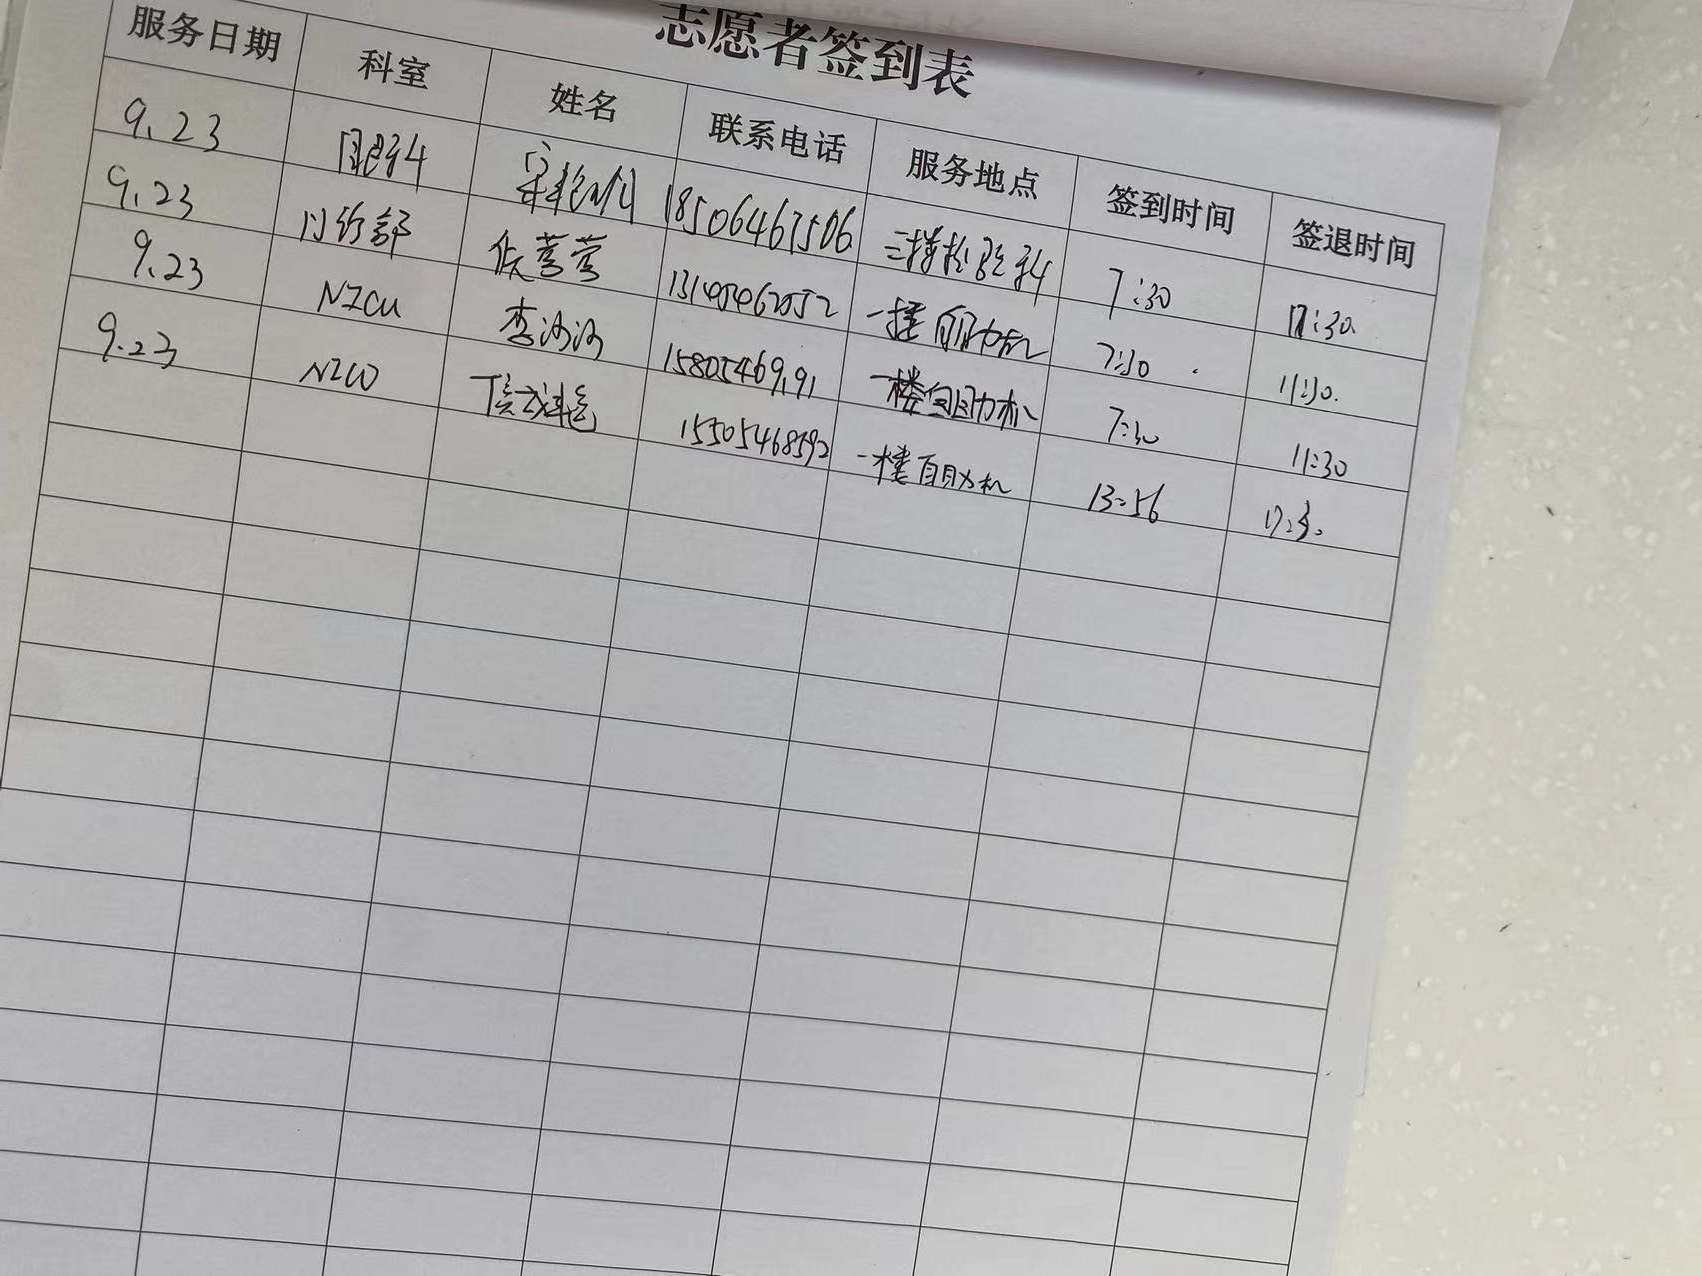 志愿者签到表
服务日期 科室 姓名 联系电话 服务地点 签到时间 签退时间
9.23 眼科 18506467506 三楼 7:30 17:30.
9.23 门诊部 侯莺莺 一楼自助机 7:30 11:30.
9.23 NICU 李沙沙 一楼自助机 7:30 11:30
9.23 NICU 15505468592 一楼自助机 13:56